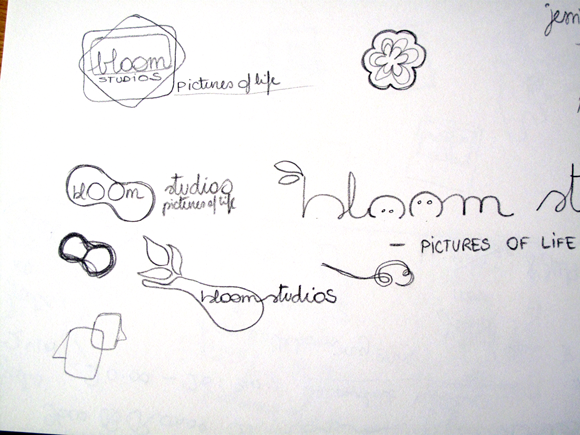 jenn
bloom
STUDIOS
pictures of life
bloom
studios
pictures of life
bloom st
— PICTURES OF LiFE
bloom studios